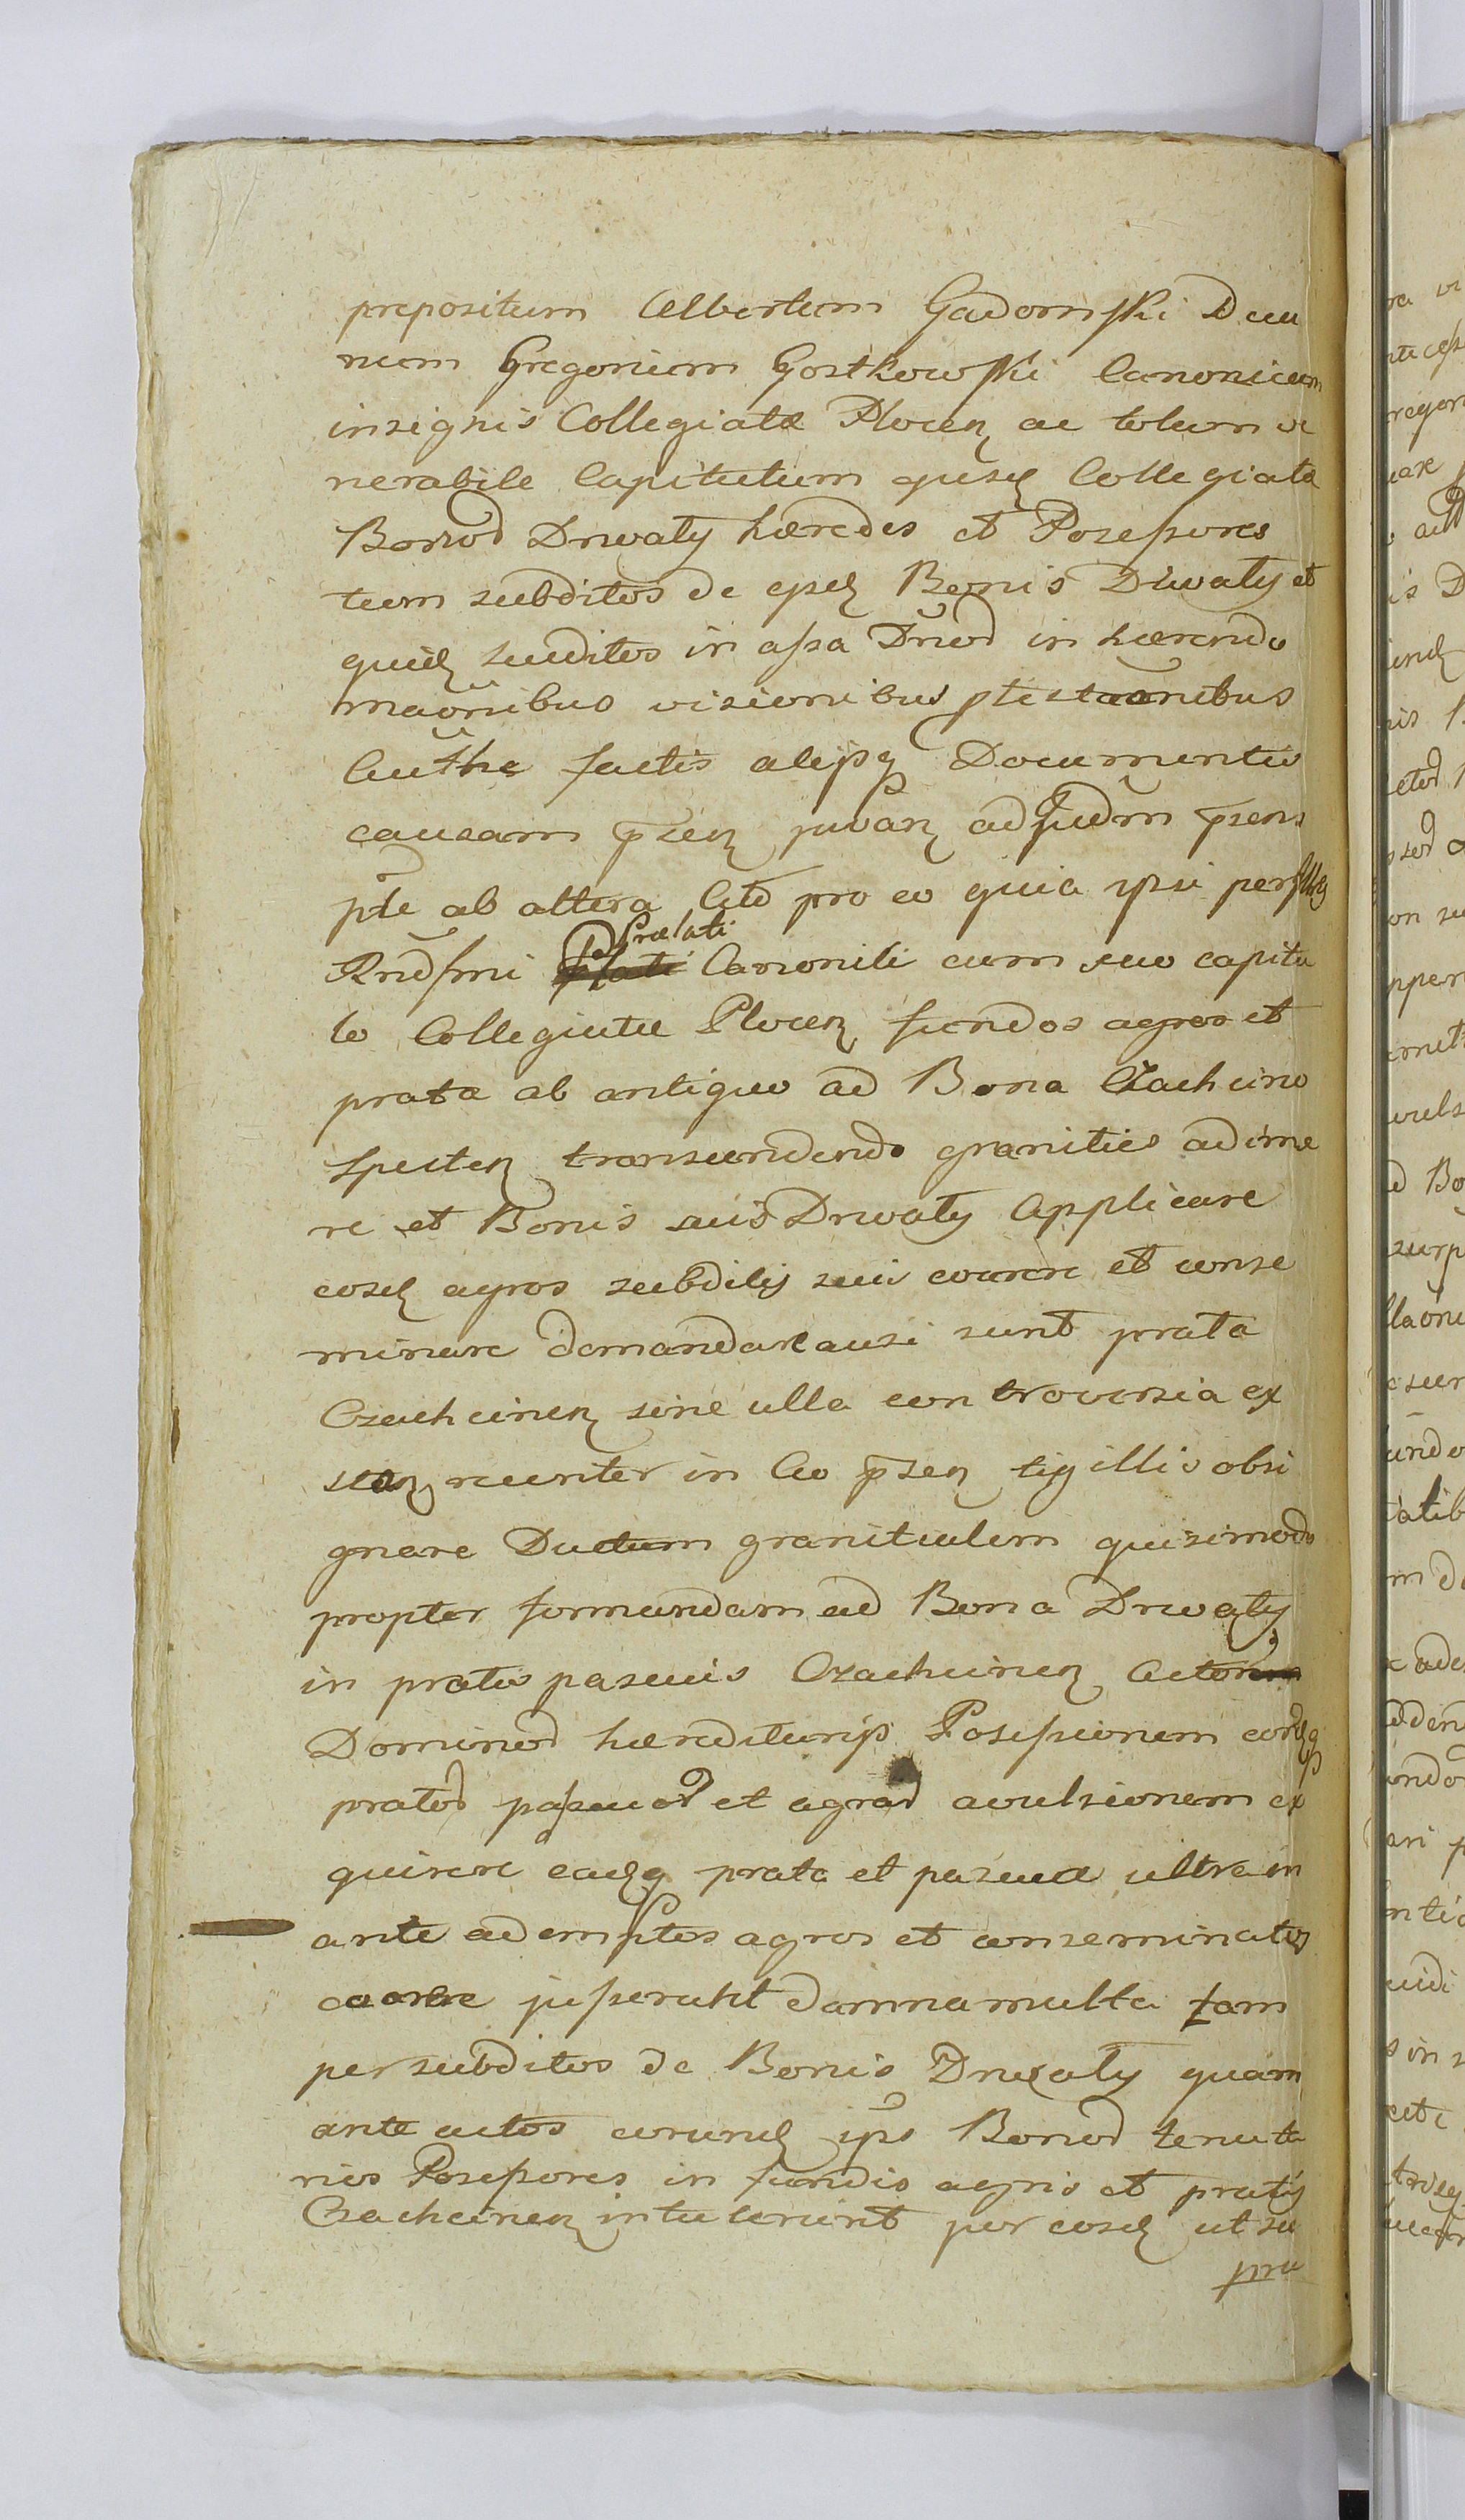 prepositum Albertum Gadomski Deca
num Gregorium Gostkowski Canonicum
insignis Collegiatæ Plocen ac totum ve
nerabile Capitulum ejusd Collegiatæ
Bonrod Drwaty hæredes et Possessores
tum subditos de ejsd Bonis Drwaty et
quid suditos in assa Dnrod in hærendo
maõnibus visionibus ptestaõnibus
Authæ factis alijsq Documentis
causam p̃sen juvan ad Judm p̃sens
pte ab altera Cito pro eo quia ipsi perIlles
Rndssmi Prælati Canonici cum suo capitu
lo Collegiatæ Plocen fundos agros et
prata ab antiquo ad Bona Czachcino
specten transcendendo granities adime
re et Bonis suis Drwaty Applicare
eosd agros subditis suis coarare et conse
minare demandare ausi sunt prata
Czachcinen sine ulla controversia ex
recenter in Ao p̃sen sigillis obsi
gnare Ductum granitialem ejusimodo
propter formandam ad Bona Drwaty
in pratis pascuis Czachcinen Actor
Dominod hæreditarijs Possessionem eordq
pratod pascuod et agrod avulsionem ex
quirere eadq prata et pascua ultra in
ante ademptos agros et conseminatos
coarare jusserunt damna multa tam
per subditos de Bonis Drwaty quam
ante actos eorund ips Bonod tenuta
rios Possessores in fundis agris et pratis
Czachcinen intulerunt per eosd ut su
pra